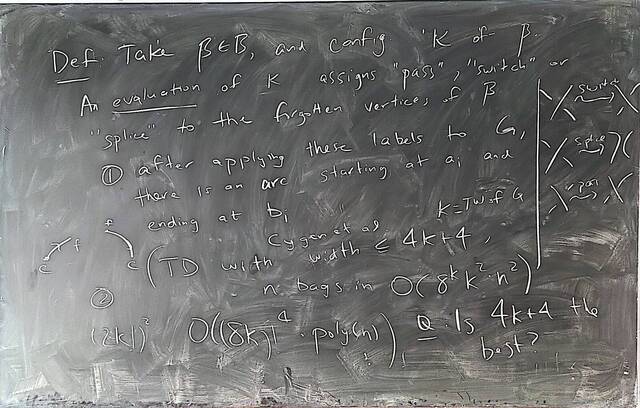 Def. Take β∈B, and config K of β.
An evaluation of K assigns "pass", "switch" or
"splice" to the forgotten vertices of β
① after applying these labels to G,
there is an arc starting at ai and
ending at bi
K=TW of G
Cygan et al
(TD with width ≤ 4k+4,
n bags in O(8^k k^2 · n^2)
②
Q: Is 4k+4 the
best?
switch
splice
pass
f
f
c
c